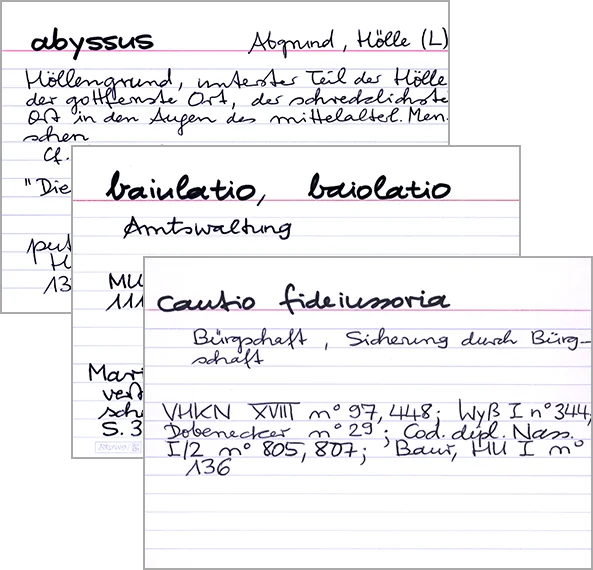 abyssus Abgrund, Hölle (L)
Höllengrund, unterster Teil der Hölle
der gottfernste Ort, der schrecklichste
Ort in den Augen des mittelalterl. Men-
schen
Cf.
"Die
put
H
13
baiulatio, baiolatio
Amtswaltung
MU
111
Mari
verf
sch
S. 3
cautio fideiussoria
Bürgschaft, Sicherung durch Bürg-
schaft
VHKN XVIII n° 97, 448; Wyß I n° 344,
Dobenecker n° 29; Cod. dipl. Nass.
I/2 n° 805, 807; Baur, HU I n°
136